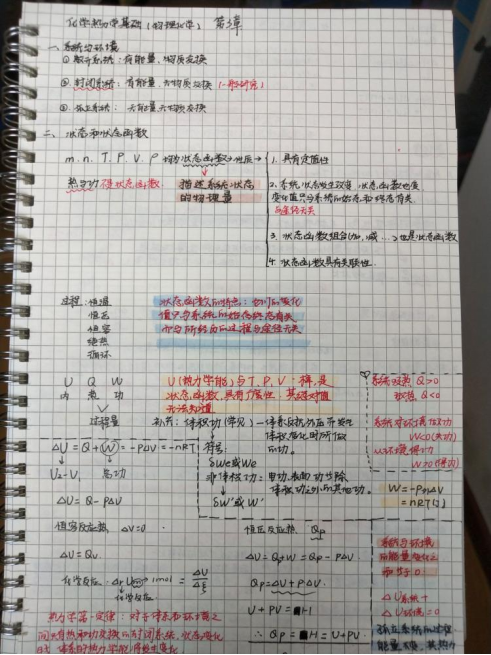 化学热力学基础(物理化学) 第3章
一、系统与环境
① 敞开系统:有能量、物质交换
② 封闭系统:有能量,无物质交换(一般研究)
③ 孤立系统 无能量、无物质交换
二、状态和状态函数
m. n. T. P. V. ρ 均为状态函数 性质→
热与功不是状态函数
描述系统状态
的物理量
1. 具有定值性
2. 系统状态发生改变,状态函数也变
变化值只与系统的始态和终态有关
与途径无关
3. 状态函数组合(加、减…)也是状态函数
4. 状态函数具有关联性
过程:恒温
恒压
恒容
绝热
循环
状态函数的特点:它们的变化
值只与系统的始态终态有关
而与所经历的过程与途径无关
U Q W
内 热 功
过程量
U(热力学能)与T、P、V一样,是
状态函数,具有广度性.其绝对值
无法知道
系统吸热 Q>0
放热 Q<0
补充:体积功(常见)—体系反抗外压而发生
体积变化时所做
的功。
ΔU = Q + W = -PΔV = -nRT
U₂-V₁ 总功
符号:
δWe或We
非体积功:电功.表面功等除
体积功之外的其他功。
δW'或W'
系统对环境做功
W<0(失功)
从环境得功
W>0(得功)
ΔU = Q - PΔV
恒容反应热 ΔV=0
恒压反应热 Qp
ΔU = Qv
ΔU = Qp+W = Qp - PΔV
化学反应
Qp = ΔU + PΔV
U + PV = H
∴ Qp = H = U+PV
系统与环境
的能量变化之
和等于0
ΔU系统 +
ΔU环境 = 0
热力学第一定律:对于体系和环境之
间只有热和功交换的封闭系统,状态变化
时 体系的热力学能将发生变化